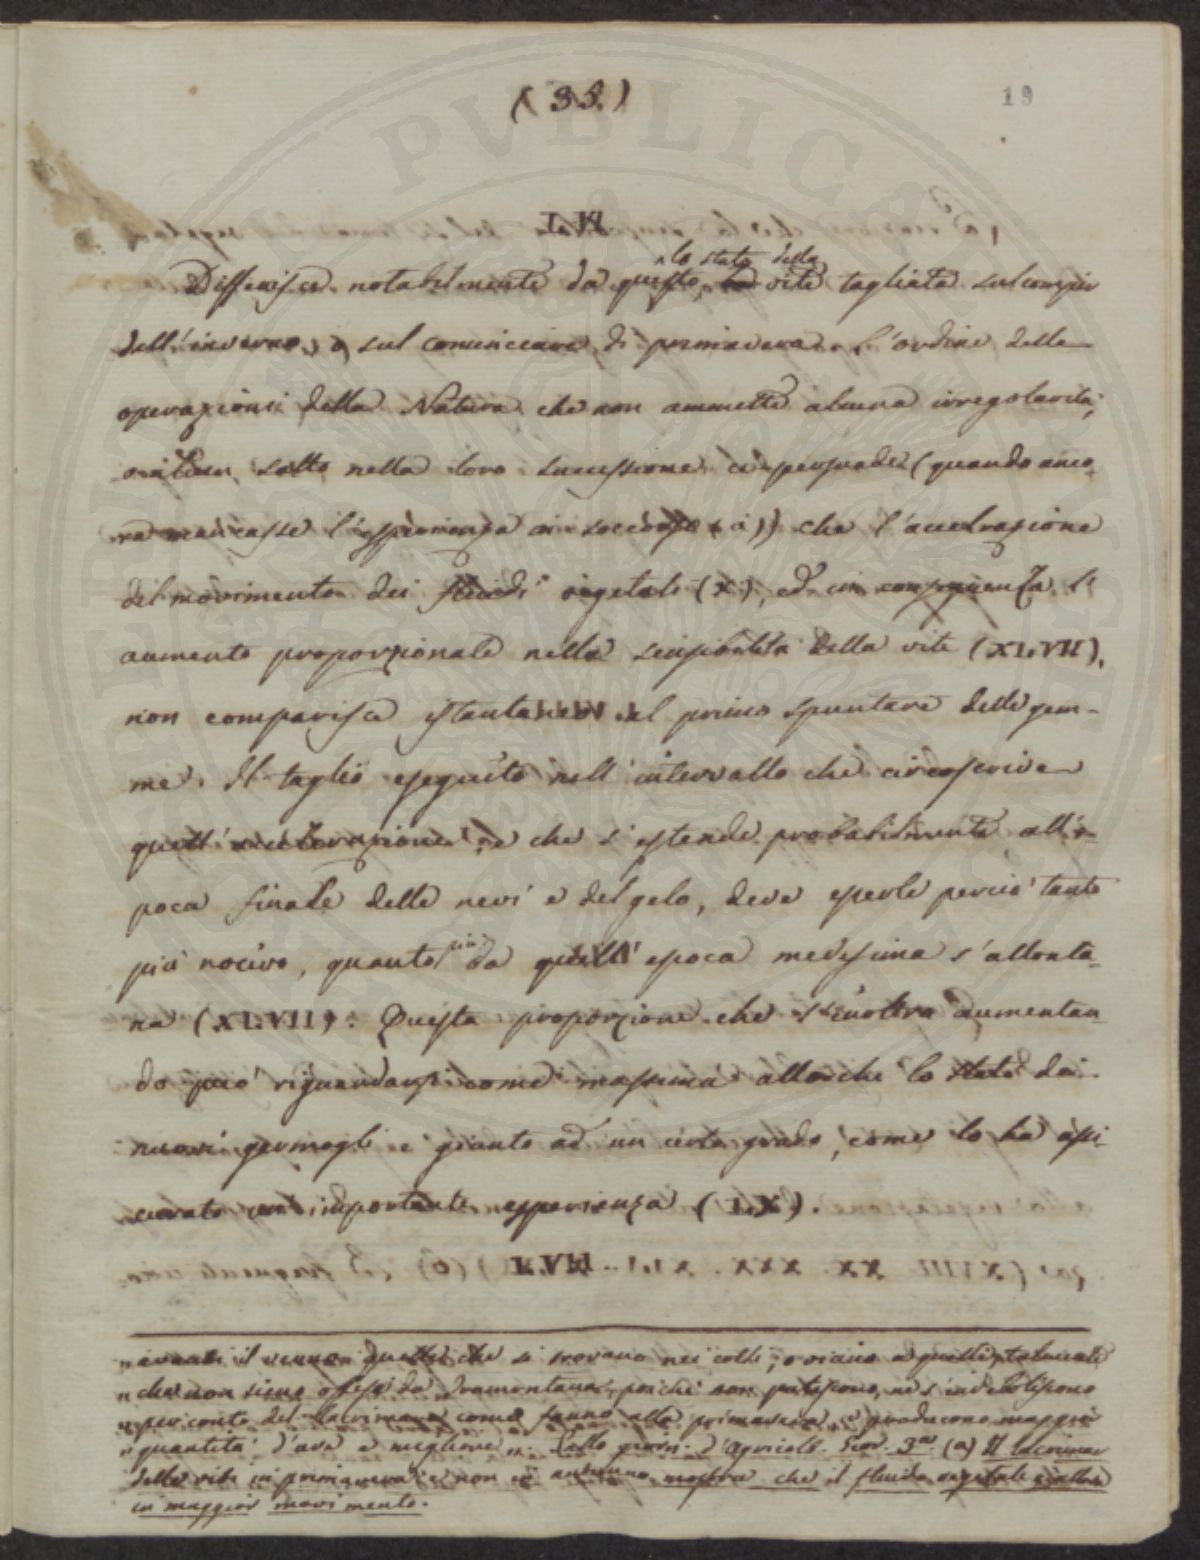 (35.)
19
LVI
^lo stato della
Differisce notabilmente da questo, vite tagliata sul compir
dell'inverno, o sul cominciare di primavera. L'ordine delle
operazioni della Natura che non ammette alcuna irregolarità,
o salto nella loro successione ci persuade (quando anco
ra mancasse l'esperienza in soccorso (a)) che l'accelerazione
del movimento dei fluidi vegetali (X), ed in conseguenza l'
aumento proporzionale nella sensibilità della vite (XLVII),
non comparisce istantaneo al primo spuntare delle gem-
me. Il taglio eseguito nell'intervallo che circoscrive
quest'accelerazione, e che s'estende probabilmente all'e-
poca finale delle nevi e del gelo, deve esserle perciò tanto
più nocivo, quanto più da quell'epoca medesima s'allonta-
na (XLVII). Questa proporzione che s'inoltra aumentan-
do può riguardarsi come massima allorchè lo stato dei
nuovi germogli è giunto ad un certo grado, come lo ha assi-
curato un'importante esperienza (LX).
"avanti il verno quelle che si trovano nei colli, o vicino a quelli, talmente
"che non siano offese da Tramontana, poichè non patiscono, nè s'indeboliscono
"per conto del lacrimare come fanno alla primavera, e producono maggior
"quantità d'uva e migliore". Gallo giorn. d'Agricolt. Gior. 3.a (a) Il lacrimar
delle viti in primavera e non in autunno mostra che il fluido vegetale è allora
in maggior movimento.